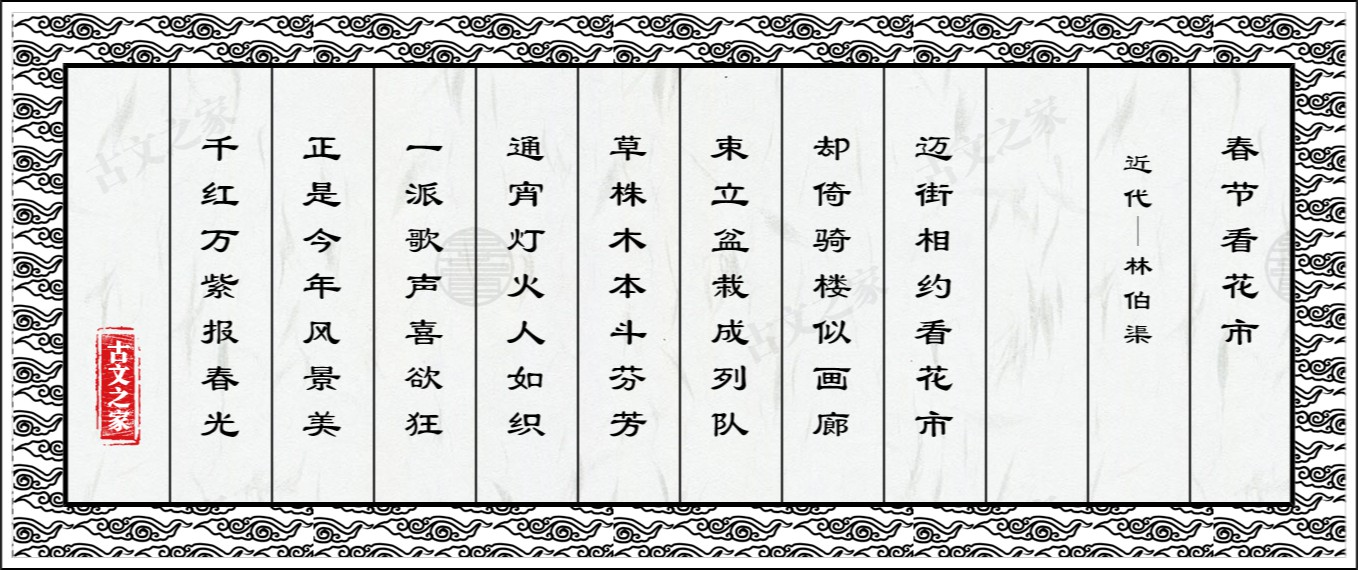 春节看花市
近代—林伯渠
迈街相约看花市
却倚骑楼似画廊
束立盆栽成列队
草株木本斗芬芳
通宵灯火人如织
一派歌声喜欲狂
正是今年风景美
千红万紫报春光
古文之家
古文之家
古文之家
古文之家